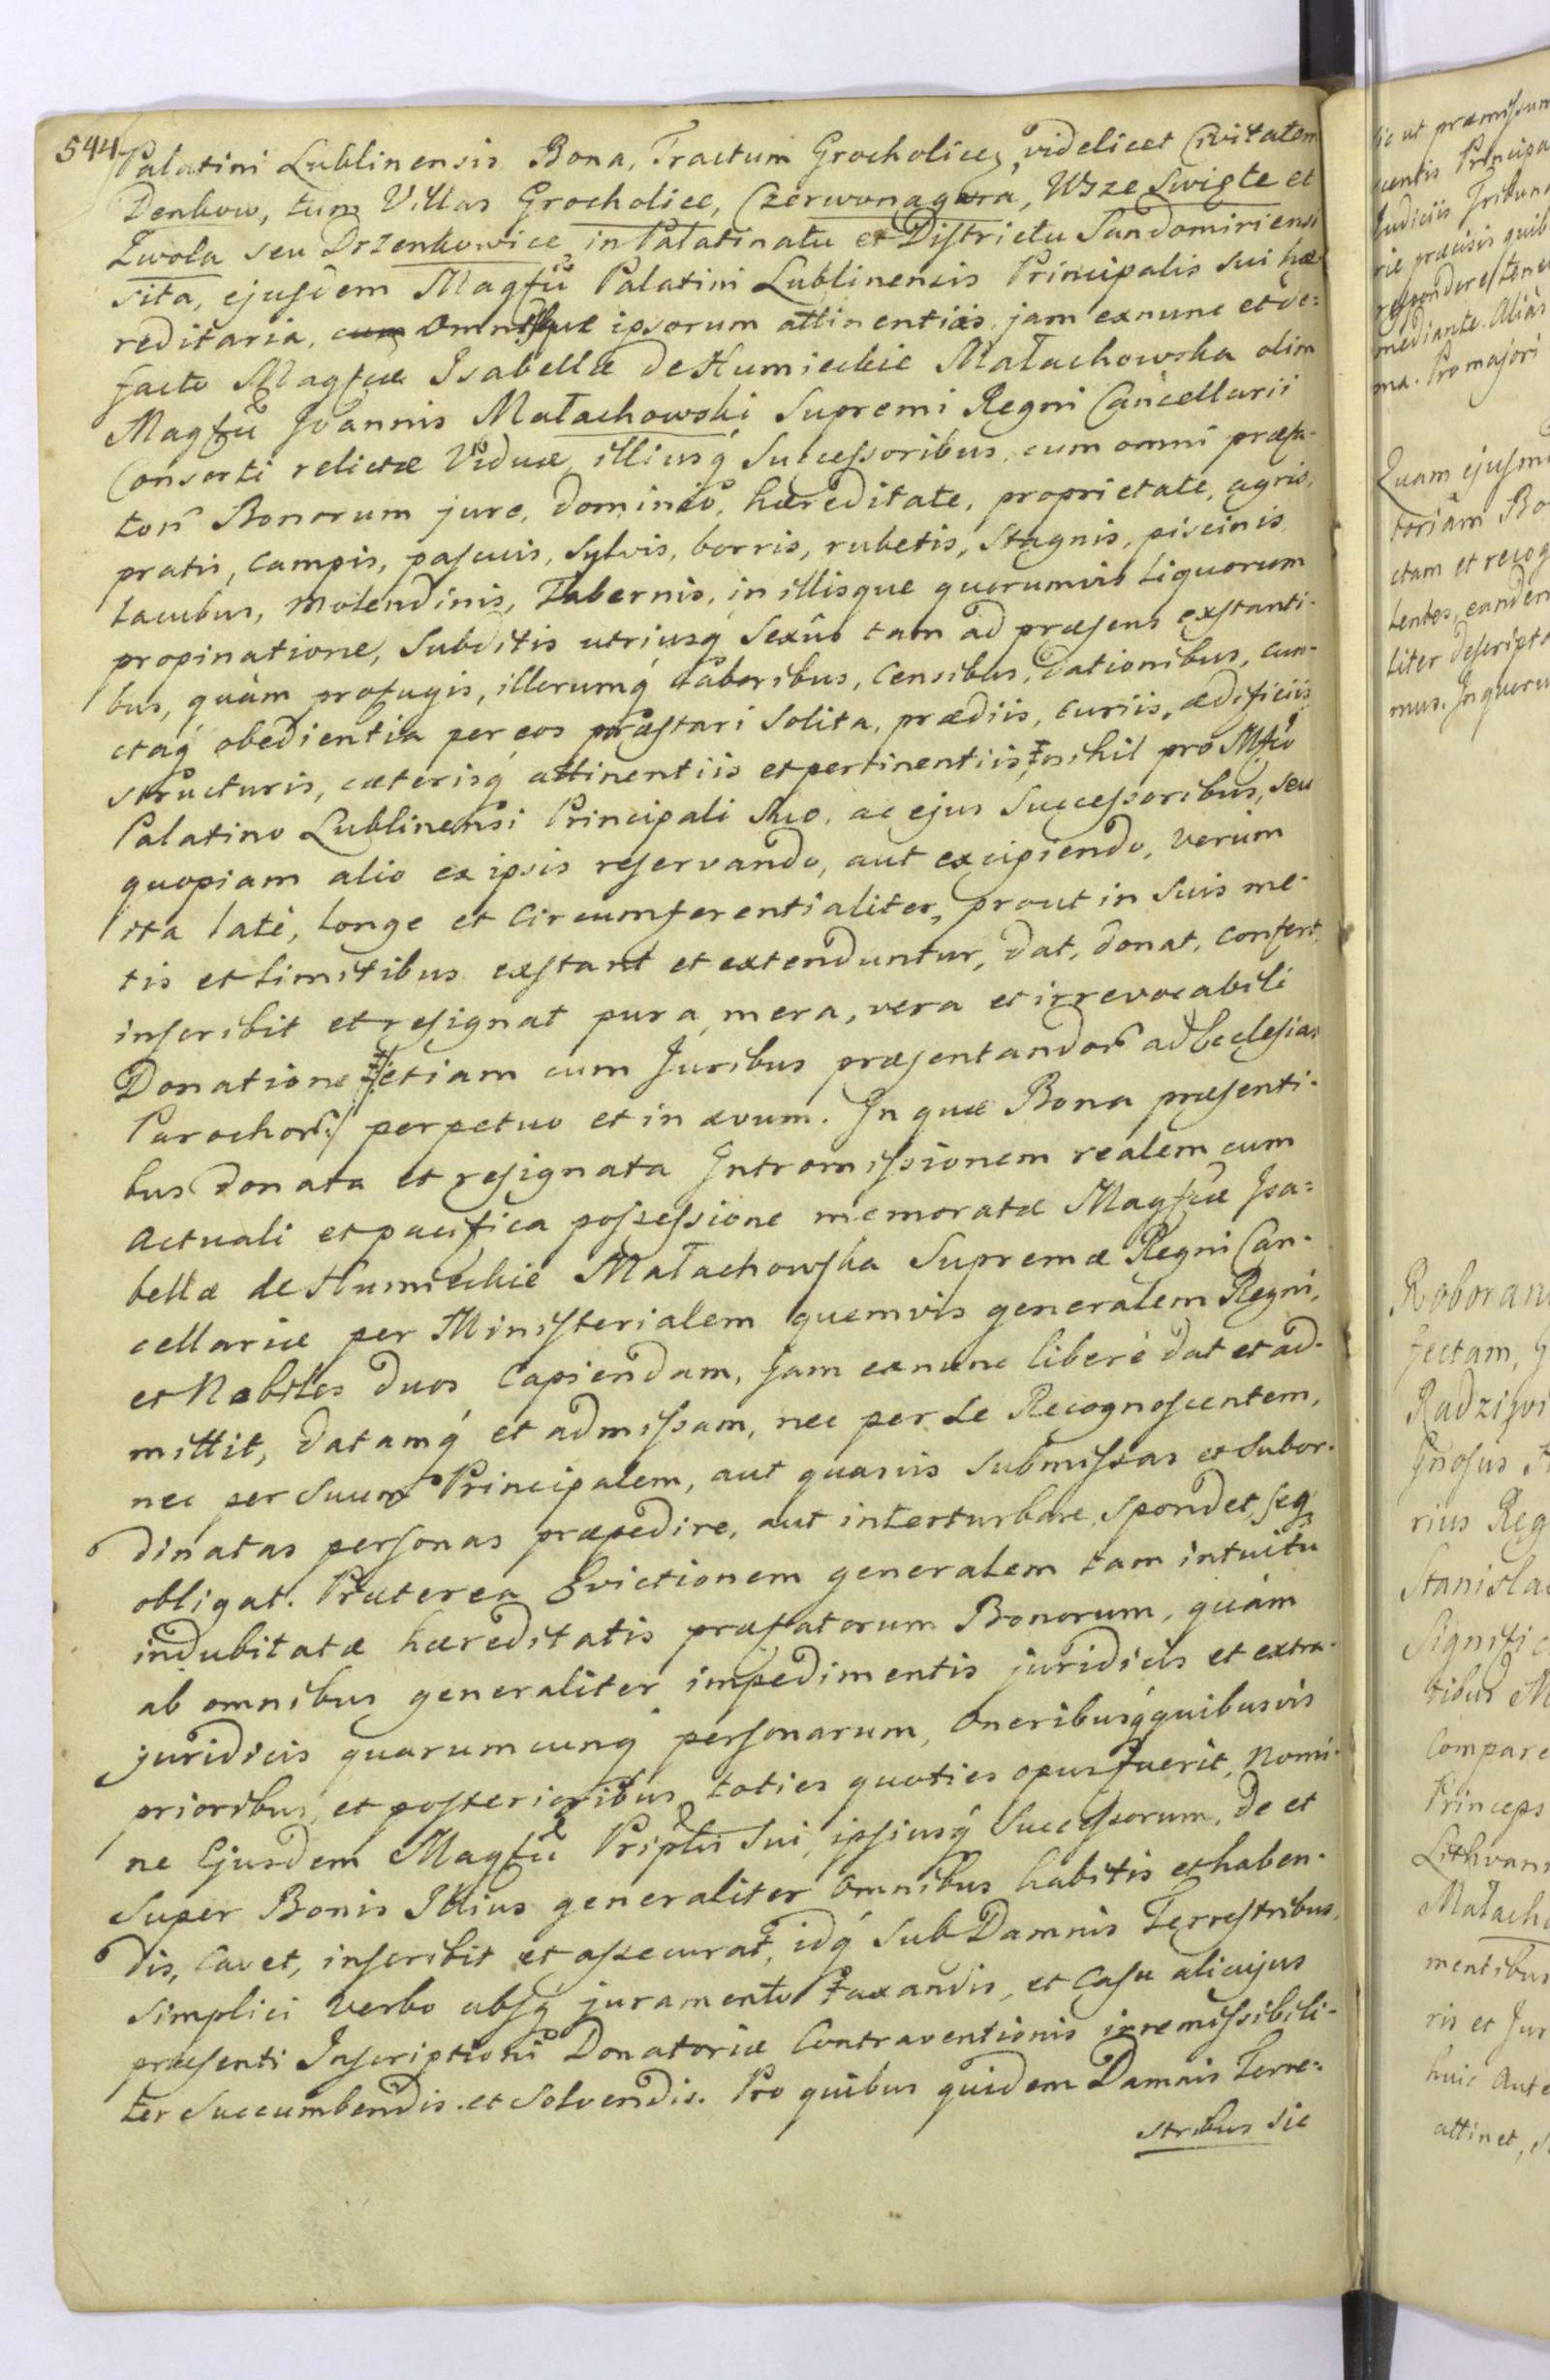 544
Palatini Lublinensis Bona, Tractum Grocholice, videlicet Civitatem
Denkow, tum Villas Grocholice, Czerwonagora, Wsze Swięte et
Zwola seu Drzenkowice in Palatinatu et Districtu Sandomiriensi
sita, ejusdem Magfci Palatini Lublinensis Principalis sui hæ
reditaria, omnesque ipsorum attinentias jam exnunc et de=
facto Magfcæ Isabellæ de Humieckie Małachowska olim
Magfci Joannis Małachowski Supremi Regni Cancellarii
Consorti relictæ Viduæ, illiusq́ Successoribus, cum omni præfa-
tor Bonorum jure, dominio, hæreditate, proprietate, agris,
pratis, campis, pascuis, sylvis, borris, rubetis, stagnis, piscinis
lacubus, molendinis, Tabernis, in illisque quorumvis liquorum
propinatione, Subditis utriusq́ Sexûs tam ad præsens exstanti-
bus, quàm profugis, illorumq́ laboribus, Censibus, dationibus, cun-
ctaq́ obedientia per eos præstari solita, prædiis, curiis, ædificiis
structuris, cæterisq́ attinentiis et pertinentiis, nihil pro Mfco
Palatino Lublinensi Principali suo, ac ejus Successoribus, seu
quopiam alio ex ipsis reservando, aut excipiendo, verùm
ita latè, longe et circumferentialiter, prout in suis me-
tis et limitibus exstant et extenduntur, dat, donat, confert,
inscribit et resignat pura, mera, vera et irrevocabili
Donatione /:etiam cum Juribus præsentandor ad Ecclesias
Parochor:/ perpetuo et in ævum. In quæ Bona præsenti-
bus donata et resignata Intromissionem realem cum
actuali et pacifica possessione memoratæ Magfcæ Isa=
bellæ de Humieckie Małachowska Supremæ Regni Can-
cellariæ per Ministerialem quemvis generalem Regni,
et Nobiles duos capiendam, jam exnunc liberè dat et ad-
mittit, datamq́ et admissam, nec per se Recognoscentem,
nec per suum Principalem, aut quasvis submissas et subor-
dinatas personas præpedire, aut interturbare, spondet, seq
obligat. Præterea Evictionem generalem tam intuitu
indubitatæ hæreditatis præfatorum Bonorum, quàm
ab omnibus generaliter impedimentis juridicis et extra-
juridicis quarumcunq́ personarum, oneribusq́ quibusvis
prioribus, et posterioribus toties quoties opus fuerit, nomi-
ne Ejusdem Magfci Priplis sui, ipsiusq́ Successorum, de et
super Bonis Illius generaliter omnibus habitis et haben-
dis, cavet, inscribit et assecurat, idq́ sub Damnis Terrestribus,
simplici verbo absq́ juramento taxandis, et casu alicujus
præsenti Inscriptioni Donatoriæ Contraventionis irremissibili-
ter succumbendis et solvendis. Pro quibus quidem Damnis Terre=
stribus sic
sic ut præmissum
Principa
Judiciis Tribuna
præcisis quib
mediante. Aliàs
ma. Pro majori
Quam ejusm
toriam Bo
ctam et recog
tentes, eandem
liter descripta
mus. In quoru
Roboran
fectam,
Radziwi
rius Reg
Stanisla
Signific
Compare
Princeps
Lithvani
Małacho
mentibus
ris et Jur
huic Aute
attinet,